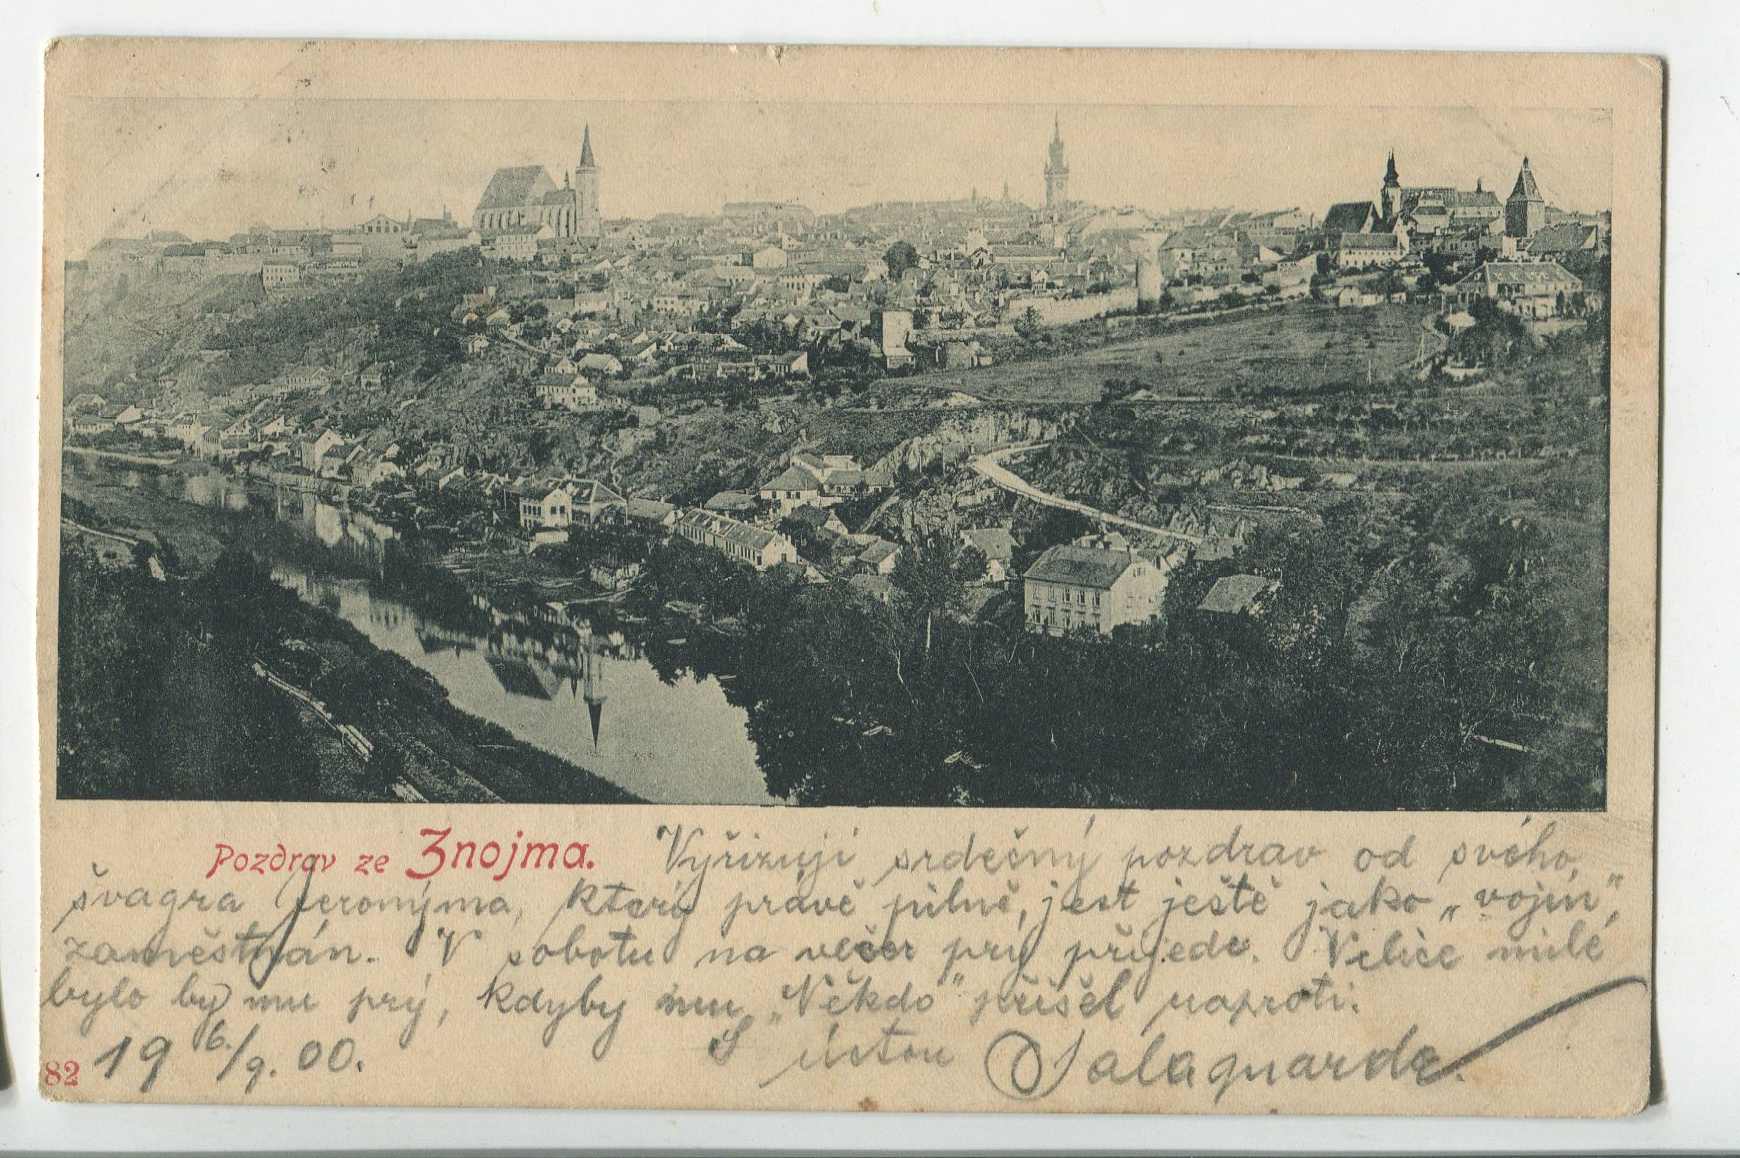 Pozdrav ze Znojma. Vyřizuji srdečný pozdrav od svého
švagra Jeronýma, který právě pilně, jest ještě jako „vojín",
zaměstnán. V sobotu na večer prý přijede. Velice milé
bylo by mu prý, kdyby mu „Někdo" přišel naproti.
S úctou Salaquarda.
82 19 6./9. 00.